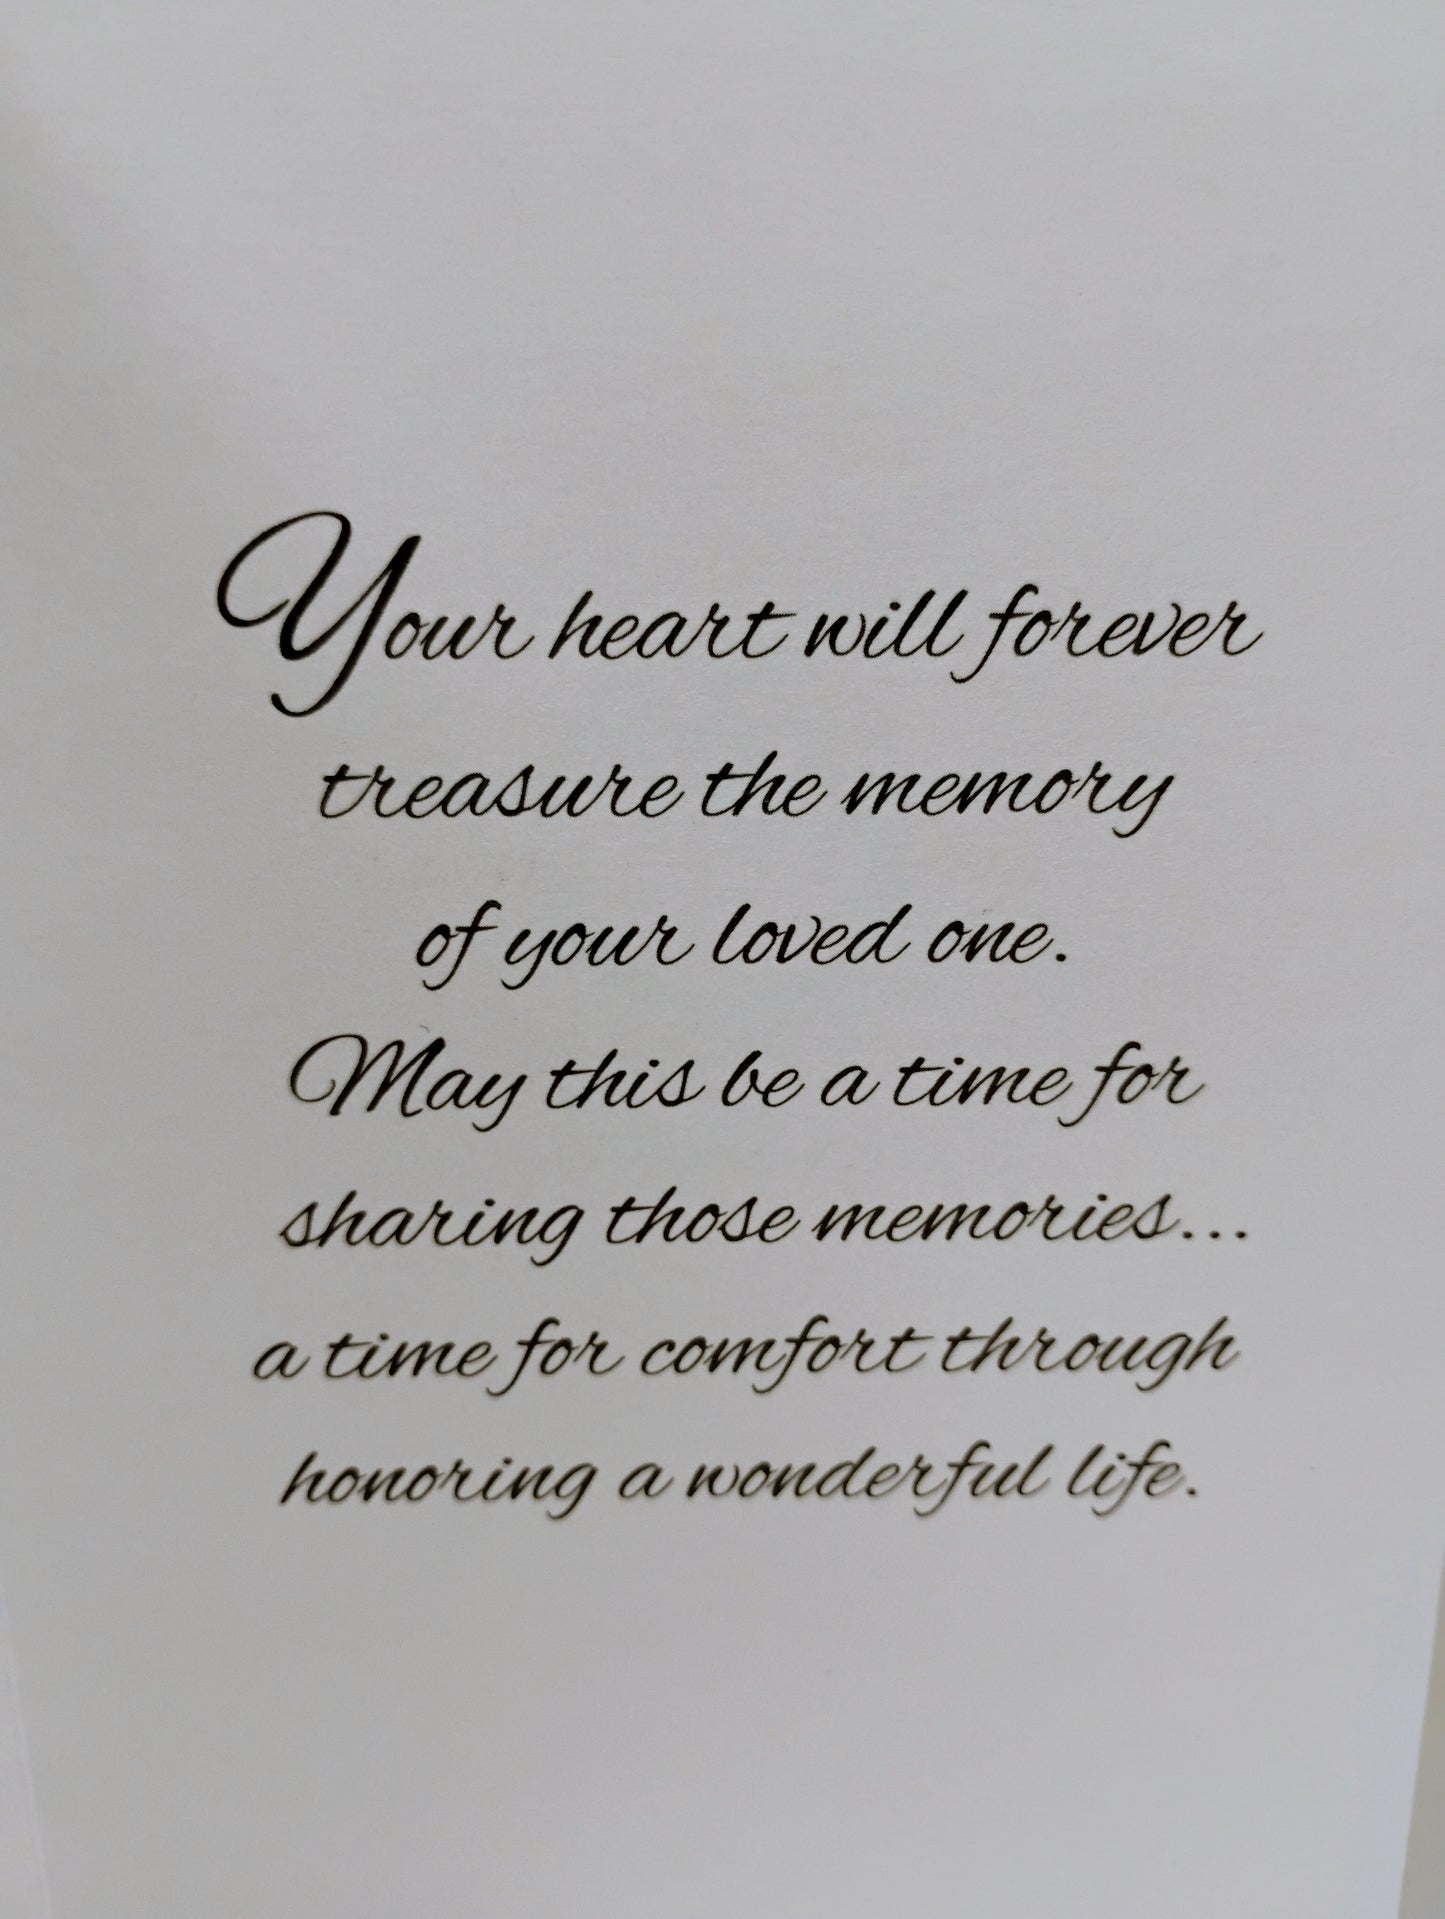 Your heart will forever
treasure the memory
of your loved one.
May this be a time for
sharing those memories...
a time for comfort through
honoring a wonderful life.